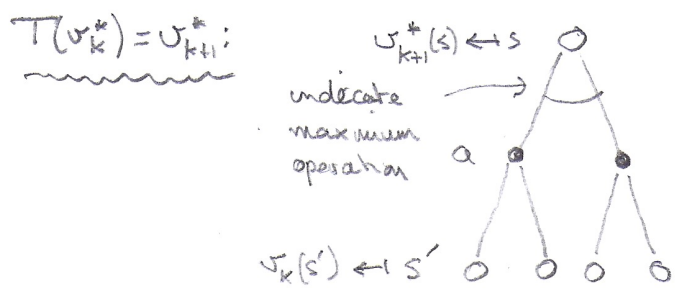 T(v*ₖ) = v*ₖ₊₁:
v*ₖ₊₁(s) ↤ s
indicate
maximum
operation
a
vₖ(s') ↤ s'